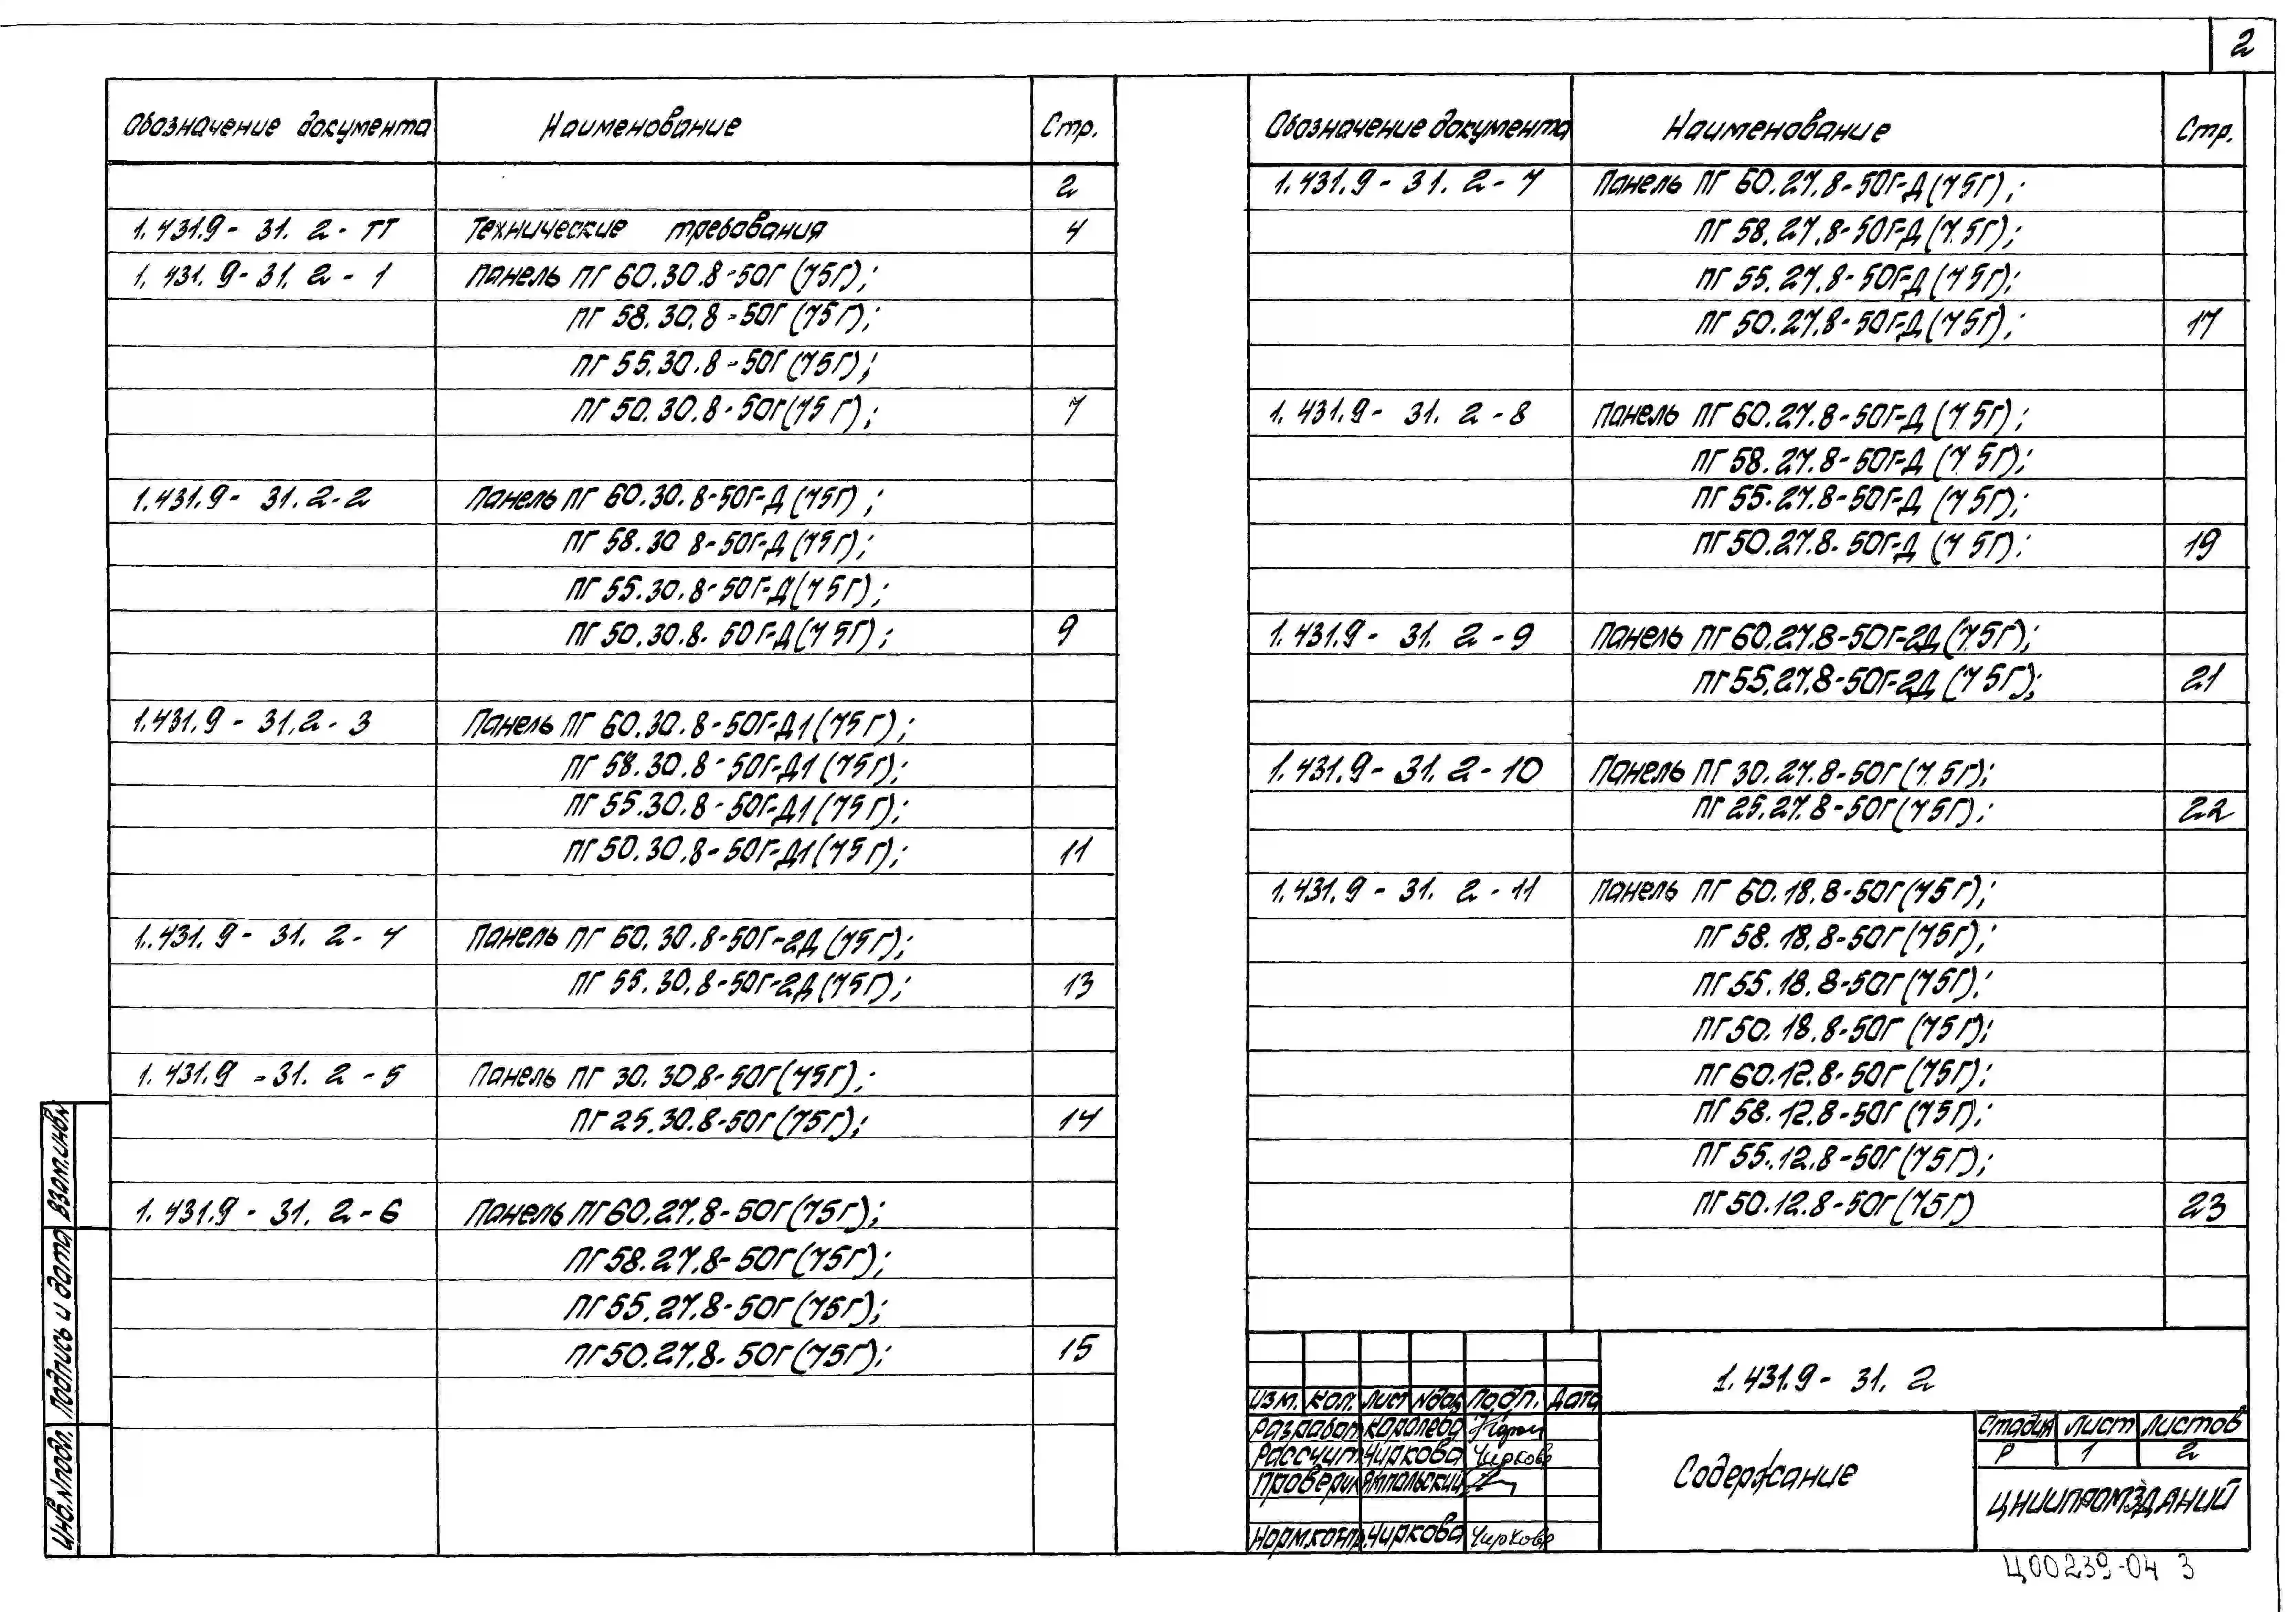 2
Обозначение документа Наименование Стр.
2
1.431.9-31.2-ТТ Технические требования 4
1.431.9-31.2-1 Панель ПГ 60.30.8-50Г (75Г);
ПГ 58.30.8-50Г (75Г);
ПГ 55.30.8-50Г (75Г);
ПГ 50.30.8-50Г (75Г); 7
1.431.9-31.2-2 Панель ПГ 60.30.8-50Г-Д (75Г);
ПГ 58.30 8-50Г-Д (75Г);
ПГ 55.30.8-50Г-Д (75Г);
ПГ 50.30.8-50Г-Д (75Г); 9
1.431.9-31.2-3 Панель ПГ 60.30.8-50Г-Д1 (75Г);
ПГ 58.30.8-50Г-Д1 (75Г);
ПГ 55.30.8-50Г-Д1 (75Г);
ПГ 50.30.8-50Г-Д1 (75Г); 11
1.431.9-31.2-4 Панель ПГ 60.30.8-50Г-2Д (75Г);
ПГ 55.30.8-50Г-2Д (75Г); 13
1.431.9-31.2-5 Панель ПГ 30.30.8-50Г (75Г);
ПГ 25.30.8-50Г (75Г); 14
1.431.9-31.2-6 Панель ПГ 60.27.8-50Г (75Г);
ПГ 58.27.8-50Г (75Г);
ПГ 55.27.8-50Г (75Г);
ПГ 50.27.8-50Г (75Г); 15
Обозначение документа Наименование Стр.
1.431.9-31.2-7 Панель ПГ 60.27.8-50Г-Д (75Г);
ПГ 58.27.8-50Г-Д (75Г);
ПГ 55.27.8-50Г-Д (75Г);
ПГ 50.27.8-50Г-Д (75Г); 17
1.431.9-31.2-8 Панель ПГ 60.27.8-50Г-Д (75Г);
ПГ 58.27.8-50Г-Д (75Г);
ПГ 55.27.8-50Г-Д (75Г);
ПГ 50.27.8-50Г-Д (75Г); 19
1.431.9-31.2-9 Панель ПГ 60.27.8-50Г-2Д (75Г);
ПГ 55.27.8-50Г-2Д (75Г); 21
1.431.9-31.2-10 Панель ПГ 30.27.8-50Г (75Г);
ПГ 25.27.8-50Г (75Г); 22
1.431.9-31.2-11 Панель ПГ 60.18.8-50Г (75Г);
ПГ 58.18.8-50Г (75Г);
ПГ 55.18.8-50Г (75Г);
ПГ 50.18.8-50Г (75Г);
ПГ 60.12.8-50Г (75Г);
ПГ 58.12.8-50Г (75Г);
ПГ 55.12.8-50Г (75Г);
ПГ 50.12.8-50Г (75Г) 23
Взам.инв.№
Подпись и дата
Инв.№подл.
Изм. Кол. Лист №док Подп. Дата
Разработ Королева
Рассчит Чиркова Чиркова
Проверил Ямпольский
Норм.контр. Чиркова Чиркова
1.431.9-31.2
Содержание
Стадия Лист Листов
Р 1 2
ЦНИИПРОМЗДАНИЙ
Ц00239-04 3